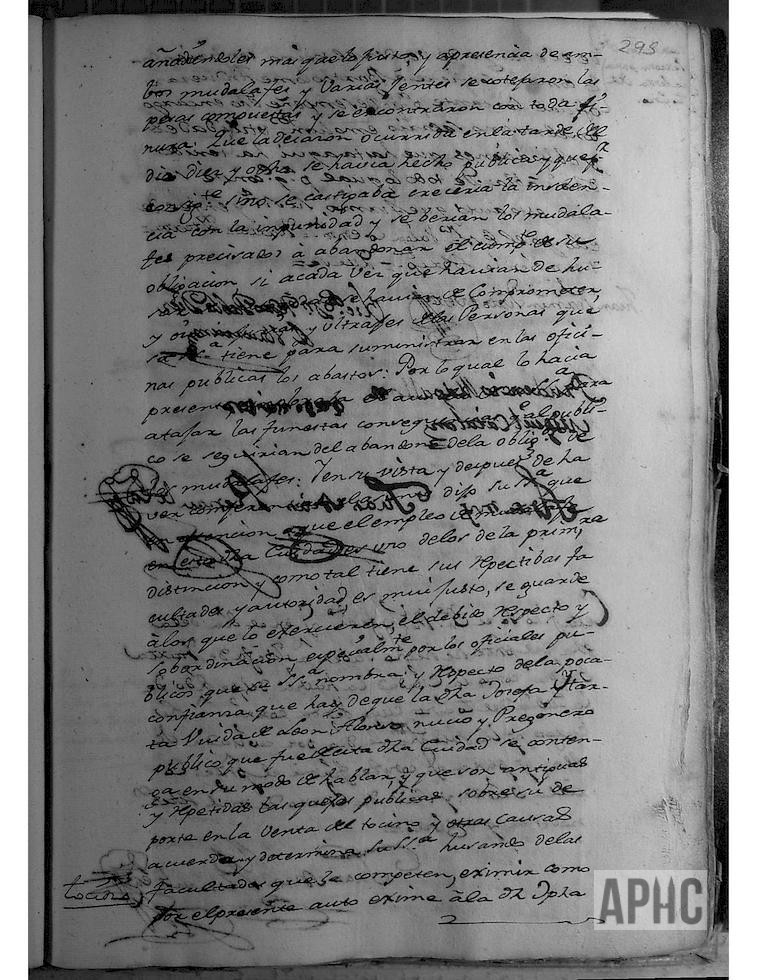 295
añadiendoles mas que lo justo, y apresencia de am-
bos mudalafes y varias Jentes se cotejaron las
pesas compuestas y se encontraron con toda fi-
nura. Que la dejaron ocurrida en la tarde del
dia diez y ocho se havia hecho publica y que p.r
consig.te sino se castigaba creceria la insolen-
cia con la impunidad y se berian los mudala-
fes precisados à abandonar el cump.to de su
obligacion, si acada vez que havian de hu-
se havian de Comprometer,
y y Vltrajes de las Personas que
su SS.a tiene para suministrar en las ofici-
nas publicas los abastos: Por lo qual lo hacia
presente para
atajar las funestas conseq.s al publi-
co se seguirian del abandono de la oblig.n de
los mudalafes: Yensu vista y despues de ha
ver dijo su SS.a que
en atencion a que el empleo de
en esta dha Ciudad es uno delos de la prim.ra
distincion y como tal tiene sus respectibas fa
cultades y autoridad es mui justo, se guarde
àlos que lo exercieren, el debido respecto y
sobordinacion especialm.te por los oficiales pu-
blicos que su SS.a nombra: y respecto de la poca
confianza que hay de que la dha Josefa Ytar-
ta Viuda de Leon Alonso nuncio y Pregonero
publico que fue de esta dha Ciudad se conten-
ga en su modo de hablar, y que son antiguas
y repetidas las quejas publicas sobre su de
porte en la Venta del tocino y otras causas
acuerda y determina su SS.a husando delas
facultades que le competen, eximir como
Por el presente auto exime àla dha Jpha
tocino
APHC